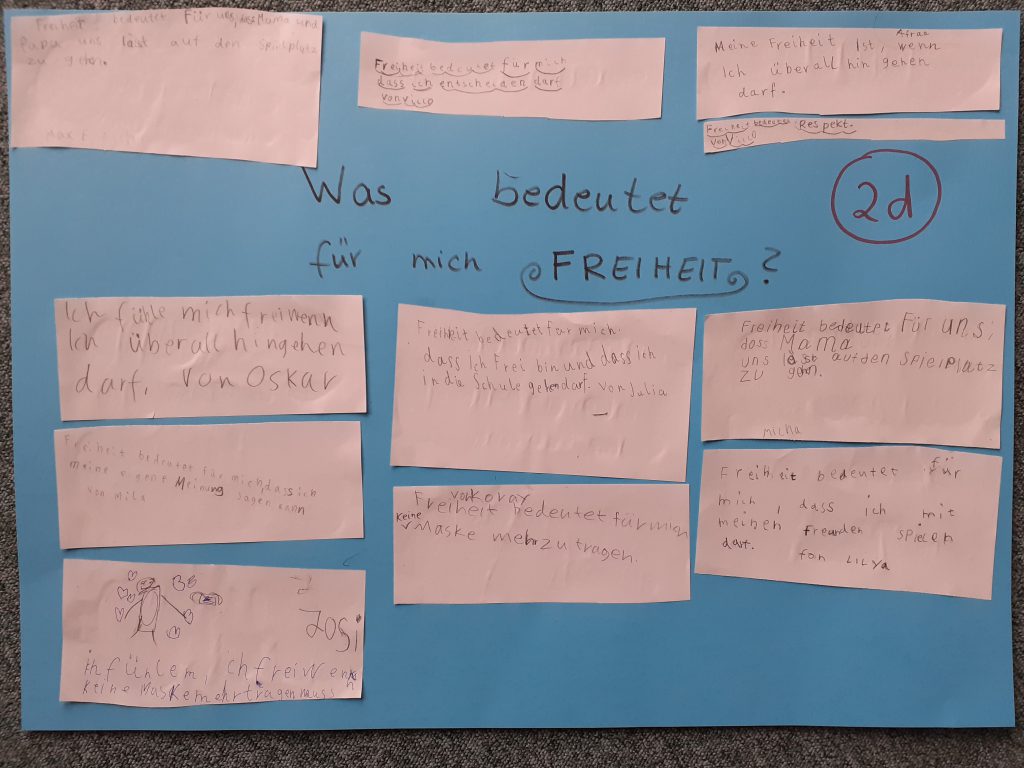 Freiheit bedeutet Für uns, dass Mama und
Papa uns läst auf den Spielplatz
zu gehn.
Freiheit bedeutet für mich
dass ich entscheiden darf
von Vicco
Afraa
Meine Freiheit Ist, wenn
Ich überall hin gehen
darf.
Freiheit bedeutet Respekt.
von
Was bedeutet
für mich FREIHEIT?
2d
Ich fühle mich frei wenn
Ich überall hingehen
darf. von Oskar
Freiheit bedeutet für mich,
dass Ich Frei bin und dass ich
in die Schule gehen darf. von Julia
Freiheit bedeutet Für uns,
dass Mama
uns läst auf den Spielplatz
zu gen.
micha
Freiheit bedeutet für mich, dass ich
meine eigene Meinung sagen kann
von Mila
von Koray
Freiheit bedeutet für mich
keine
Maske mehr zu tragen.
Freiheit bedeutet für
mich, dass ich mit
meinen freunden spielen
darf.
fon LiLya
Josi
ich frei wenn
keine Maske mehr tragen muss